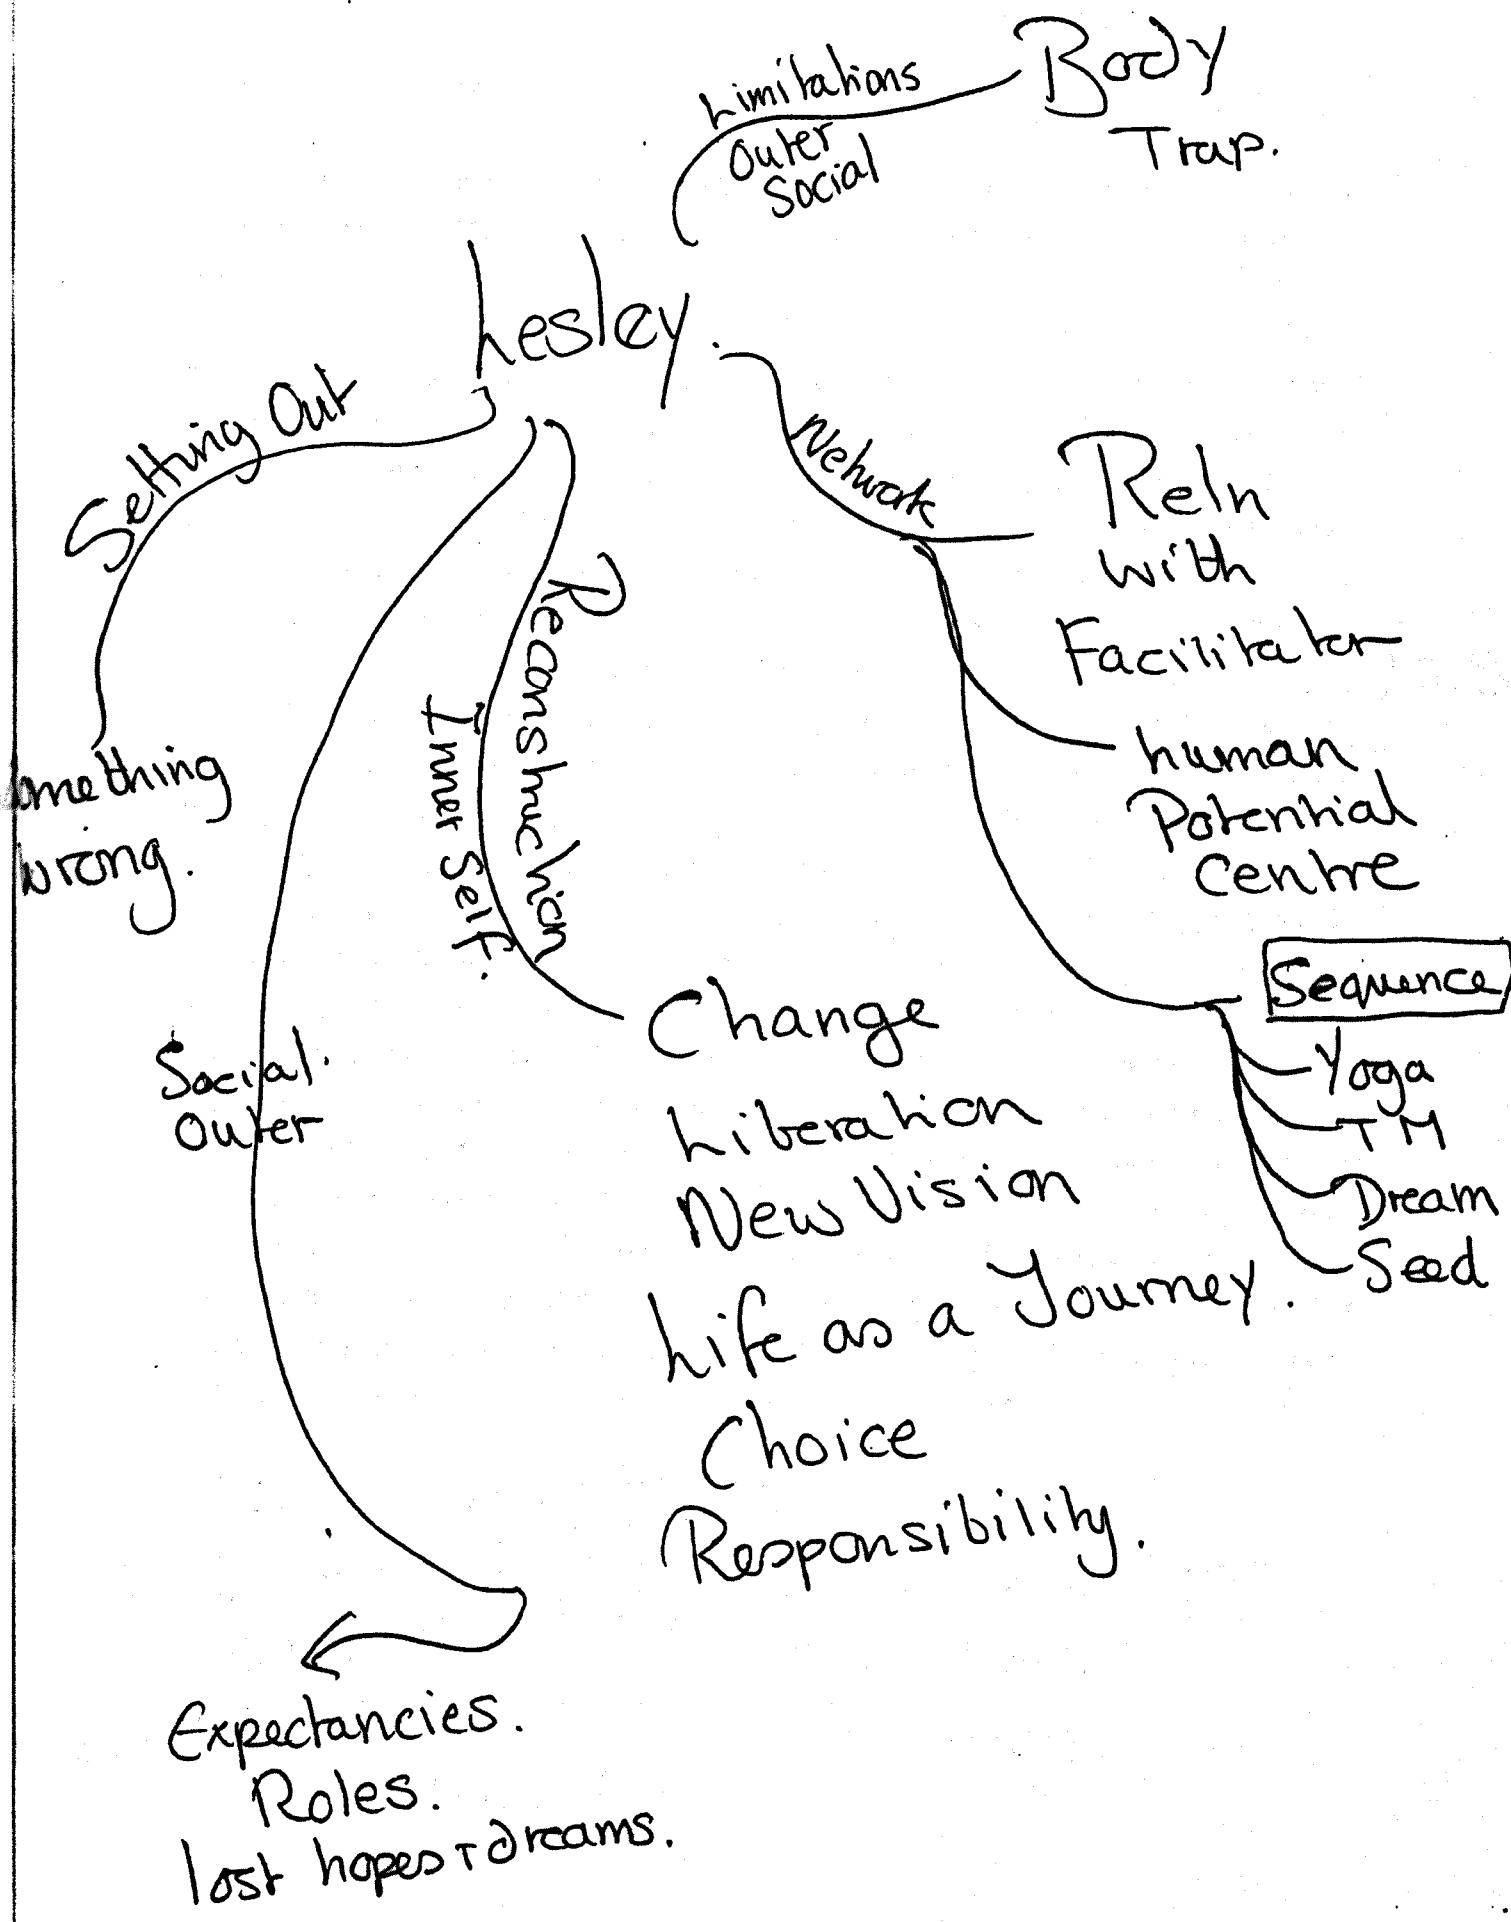 Limitations
Outer
Social
Body
Trap.
Lesley.
Setting Out
Something
wrong.
Network
Reln
with
Facilitator
Human
Potential
Centre
Sequence
Yoga
TM
Dream
Seed
Reconstruction
Inner Self.
Change
Liberation
New Vision
Life as a Journey.
Choice
Responsibility.
Social.
Outer
Expectancies.
Roles.
lost hopes + dreams.